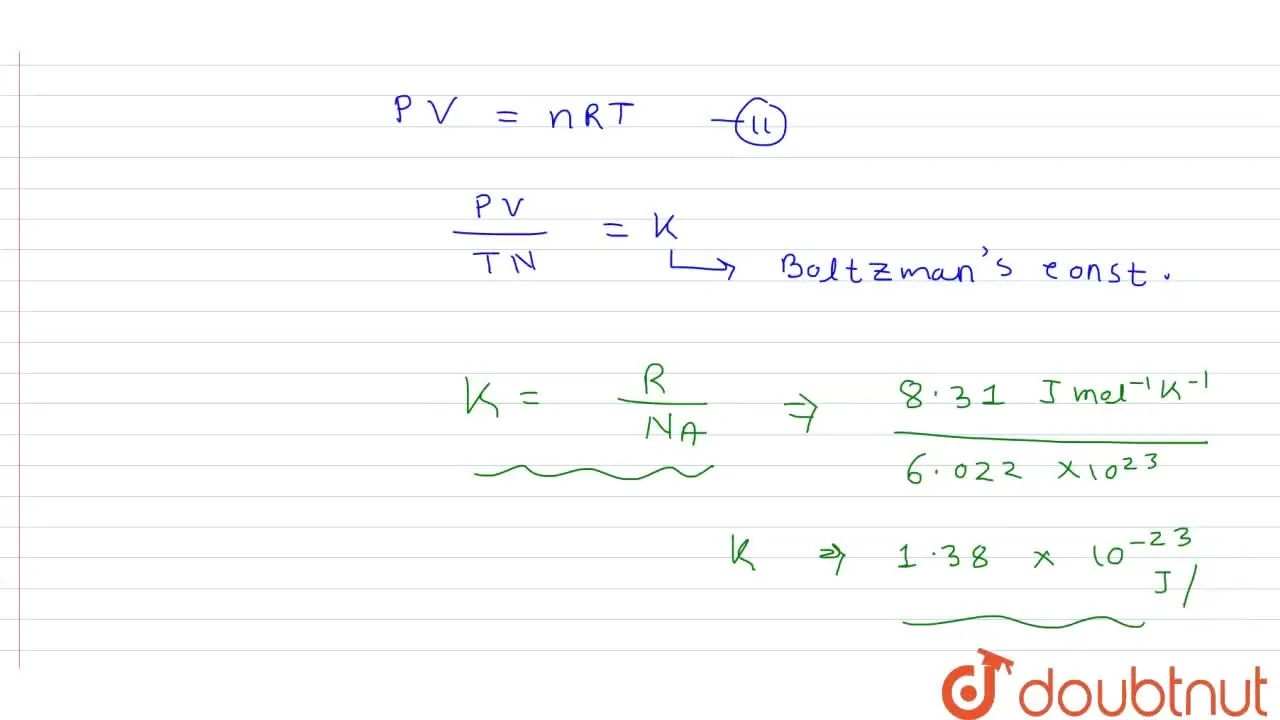 PV = nRT —(11)
PV
TN
= K
Boltzman's const.
K = R / NA ⇒ 8.31 J mol⁻¹ K⁻¹ / 6.022 × 10²³
K ⇒ 1.38 × 10⁻²³
J/
doubtnut